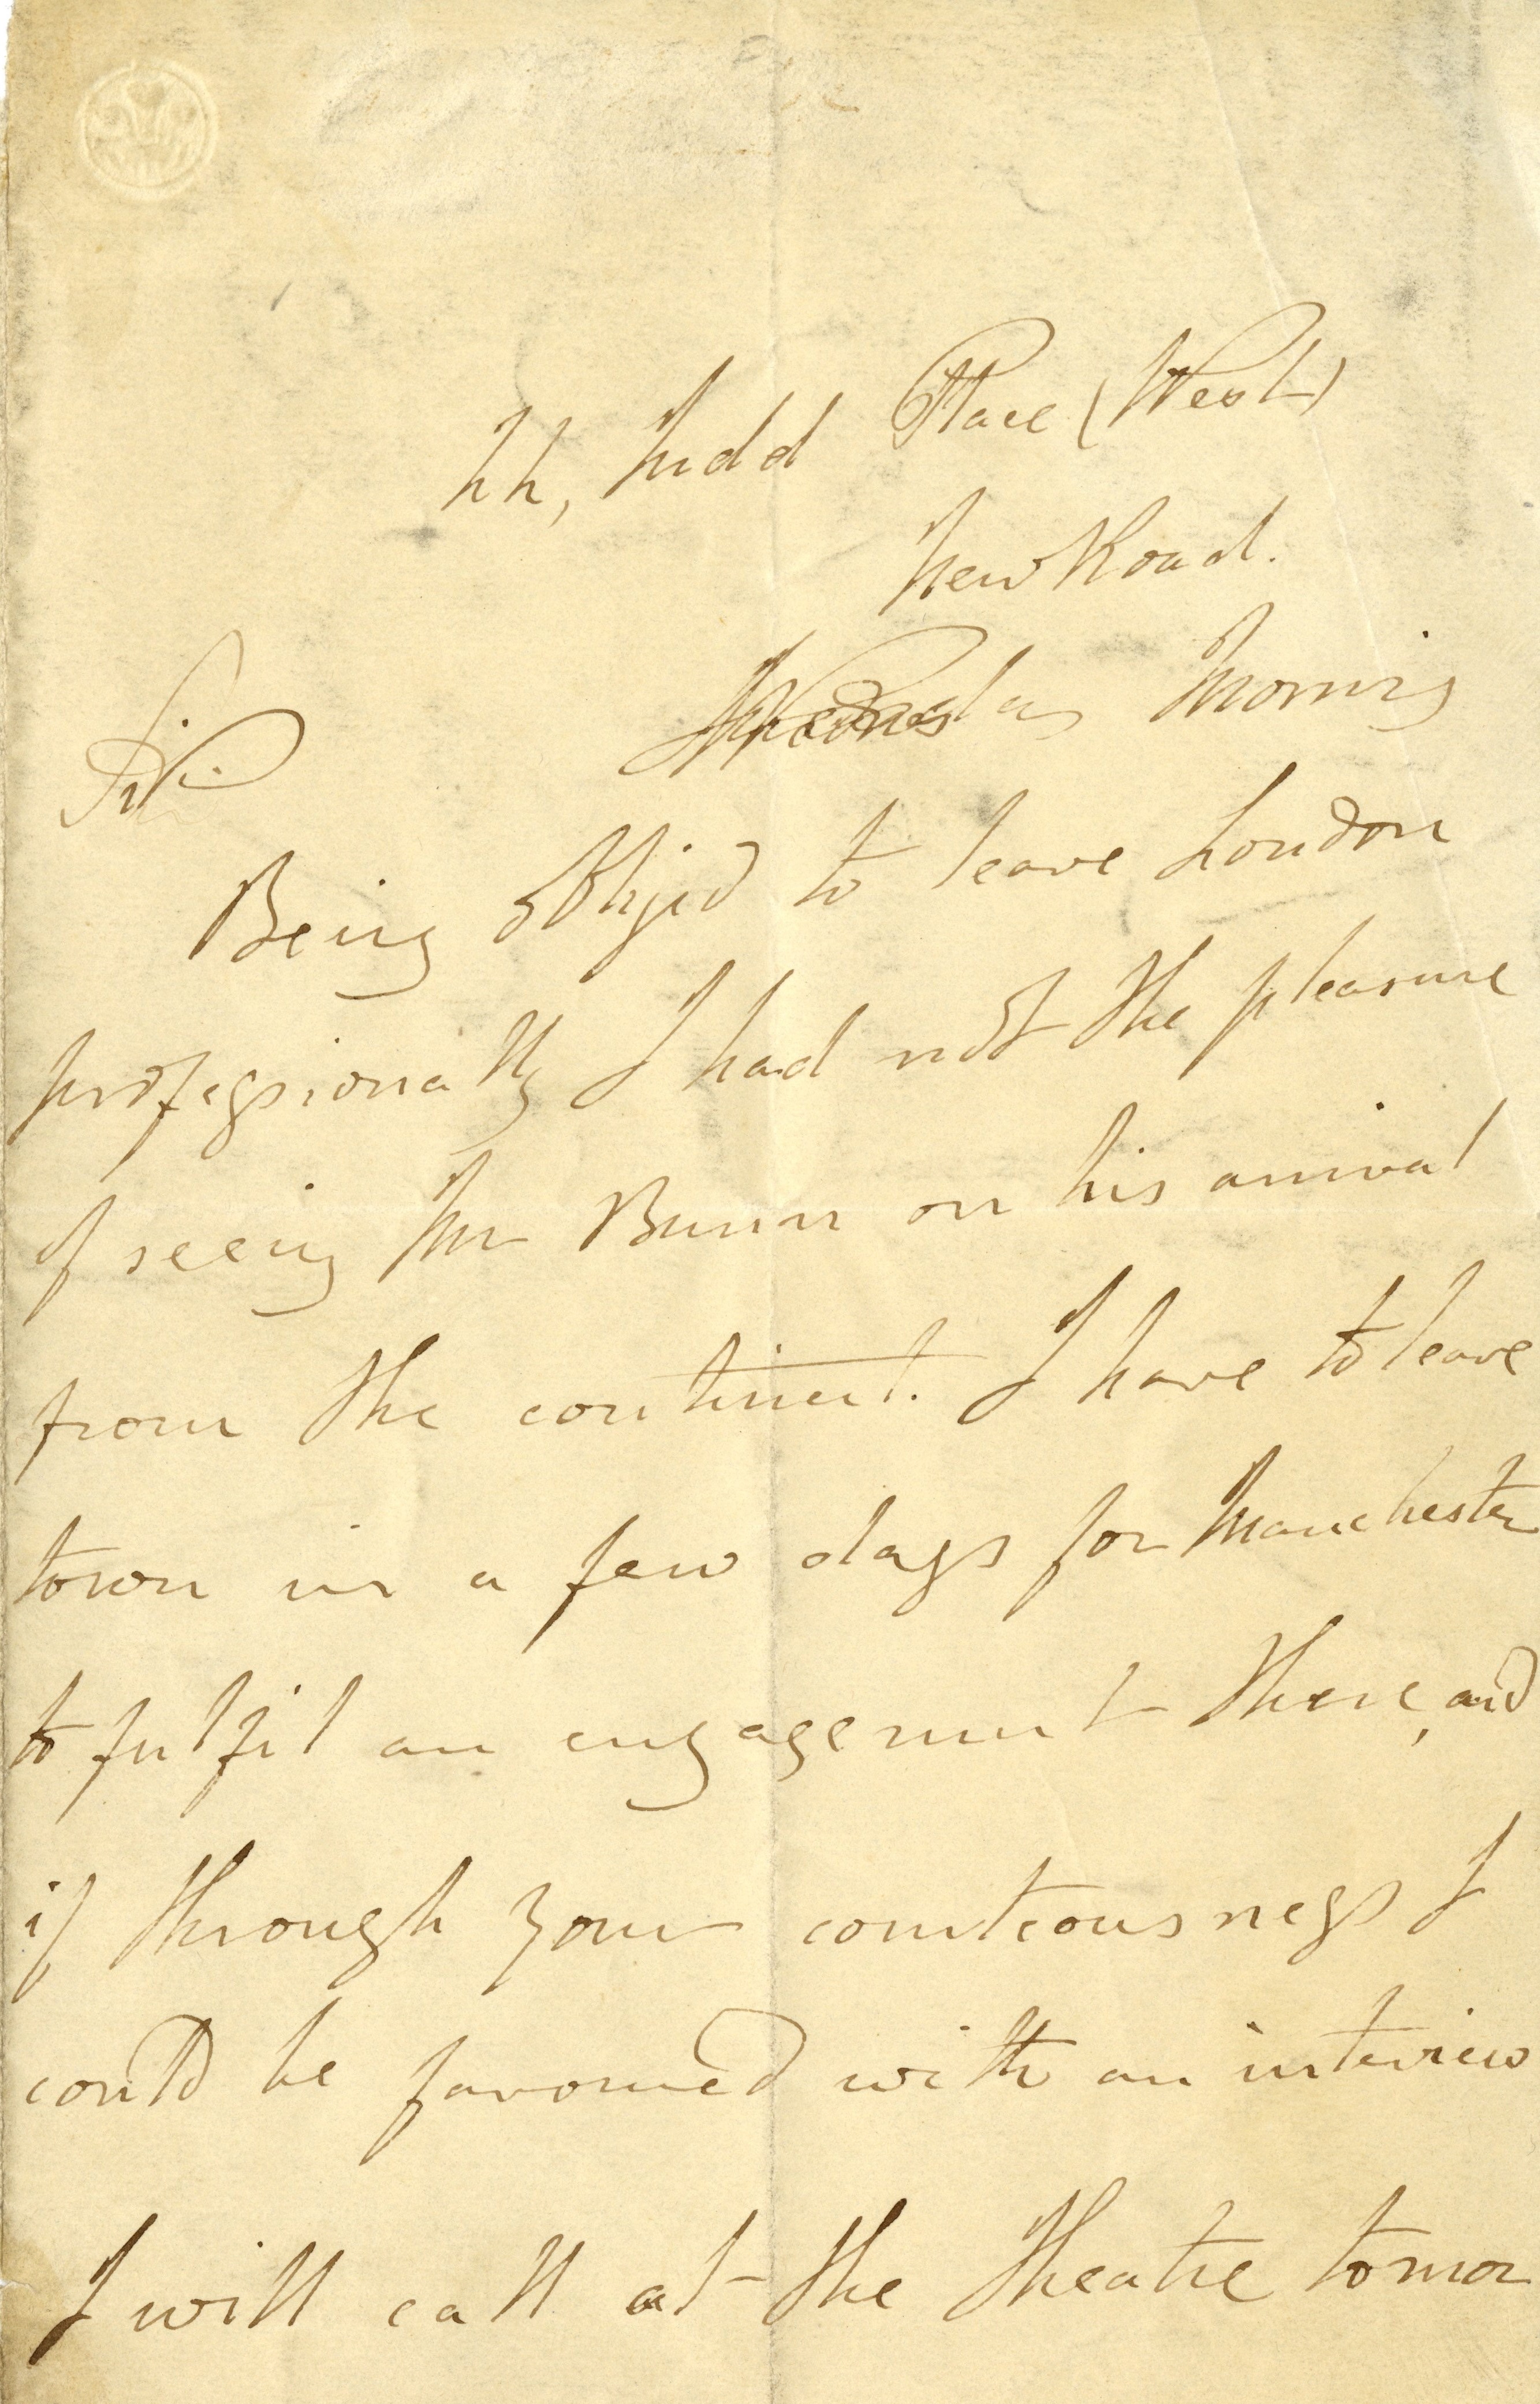 44, Judd Place (West)
New Road.
Wednesday Morning
Sir
Being obligied to leave London
professionally I had not the pleasure
of seeing Mr Bunn on his arrival
from the continent. I have to leave
town in a few days for Manchester
to fulfil an engagement there, and
if through your courteousness I
could be favoured with an interview
I will call at the Theatre tomor